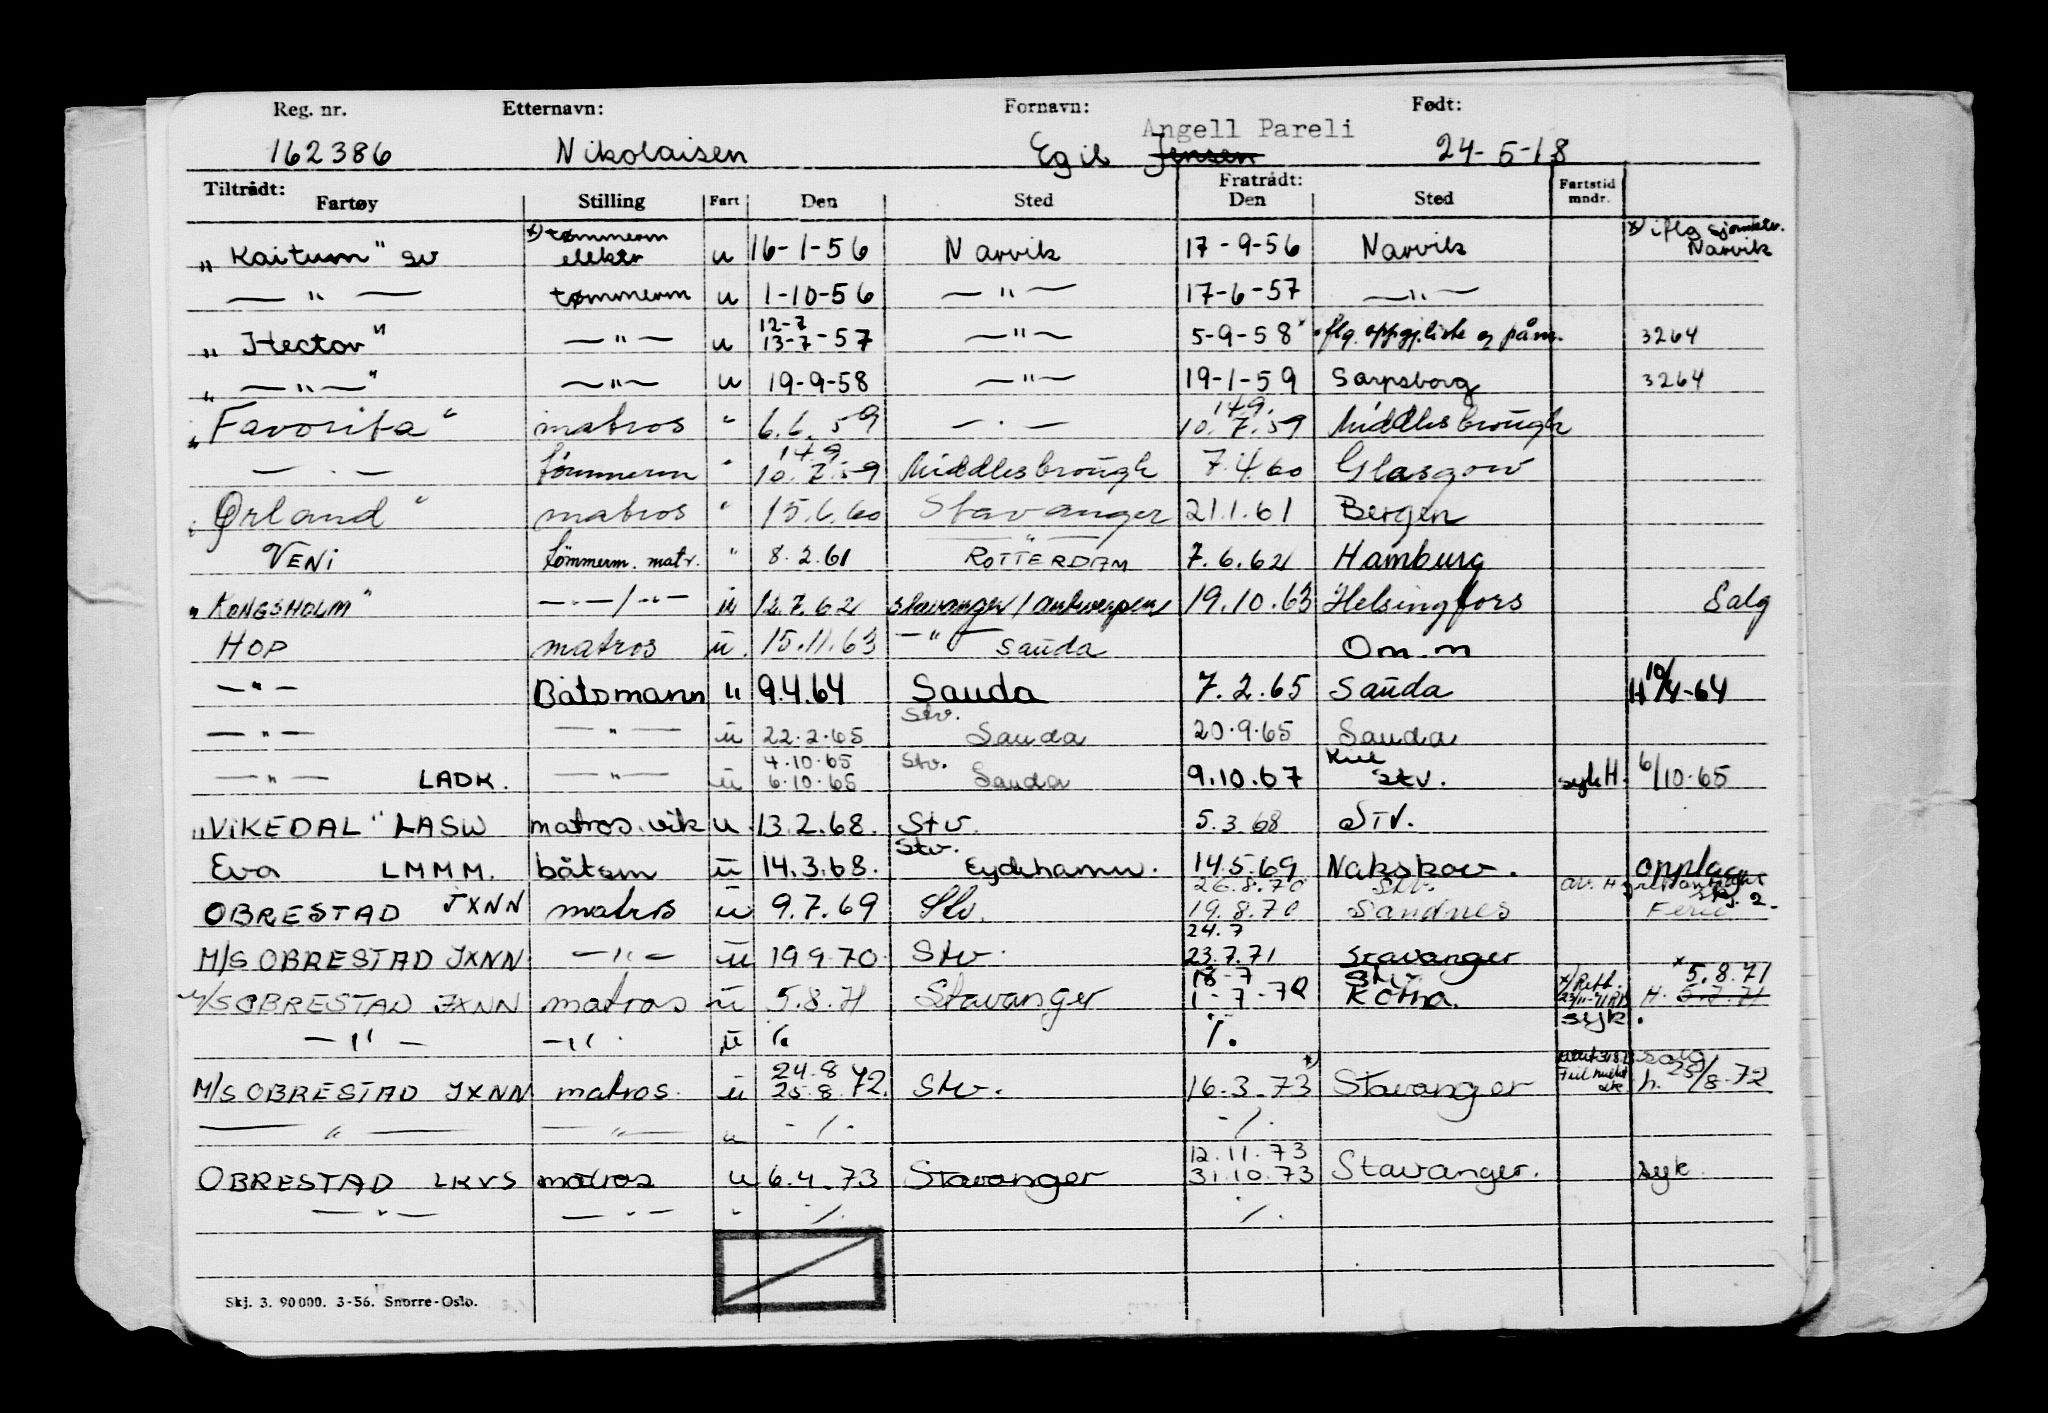 Reg. nr. Etternavn: Fornavn: Født:
Angell Pareli
162386 Nikolaisen Egil Jensen 24-5-18
Tiltrådt: Fratrådt: Fartstid mndr.
Fartøy Stilling Fart Den Sted Den Sted
"Kaitum" sv x) tømmerm elektr u 16-1-56 Narvik 17-9-56 Narvik x) iflg sjømktr. Narvik
— " — tømmerm u 1-10-56 — " — 17-6-57 — " —
"Hector" — " — u 12-7 13-7-57 — " — 5-9-58 flg. oppgj.liste og påm. 3264
" — " — " — " — u 19-9-58 — " — 19-1-59 Sarpsborg 3264
"Favorita" matros " 6.6.59 — " — 14.9. 10.7.59 Middlesbrough
— " — tømmerm " 14.9. 10.7.59 Middlesbrough 7.4.60 Glasgow
"Ørland" matros " 15.6.60 Stavanger 21.1.61 Bergen
VENI tømmerm. matr. " 8.2.61 — " — ROTTERDAM 7.6.62 Hamburg
"KONGSHOLM" — " — / — " — u 12.7.62 Stavanger / Antwerpen 19.10.63 Helsingfors Salg
HOP matros u. 15.11.63 — " — Sauda Om.m
— " — Båtsmann " 9.4.64 Sauda 7.2.65 Sauda H 10/4-64
— " — — " — u 22.2.65 Stv. Sauda 20.9.65 Sauda
— " — LADK. — " — u 4.10.65 6.10.65 Stv. Sauda 9.10.67 Kiel Stv. syk H. 6/10.65
"VIKEDAL" LASW matros.vik u 13.2.68. Stv. 5.3.68 STV.
Eva LMMM. båtsm u 14.3.68. Stv. Eydehamn. 14.5.69 Nakskov. Opplag
OBRESTAD JXNN matros u 9.7.69 Stv. 26.8.70 19.8.70 Stv. Sandnes Ferie
M/S OBRESTAD JXNN — " — u 19.9.70 Stv. 24.7 23.7.71 Stavanger
M/S OBRESTAD JXNN matros u 5.8.71 Stavanger 18-7 1-7-72 Stv. Kotka. x 5.8.71 H. 5.7.71
— " — — " — u ٪ ٪ syk.
M/S OBRESTAD JXNN matros. u 24.8 25.8.72. Stv. 16.3.73 x) Stavanger Salg h. 25/8.72
— " — — " — u -٪- -٪-
OBRESTAD LKVS matros u 6.4.73 Stavanger 12.11.73 31.10.73 Stavanger. syk.
— " — — " — " ٪ ٪
Skj. 3. 90000. 3-56. Snorre-Oslo.